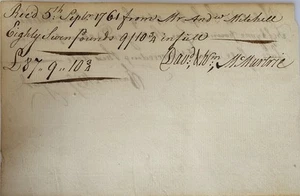 Recd 5th Septr 1761 from Mr Andw Mitchell
Eighty Seven Pounds 9/10¾ in full
£87-9-10¾ Davd & Wm McMurtrie